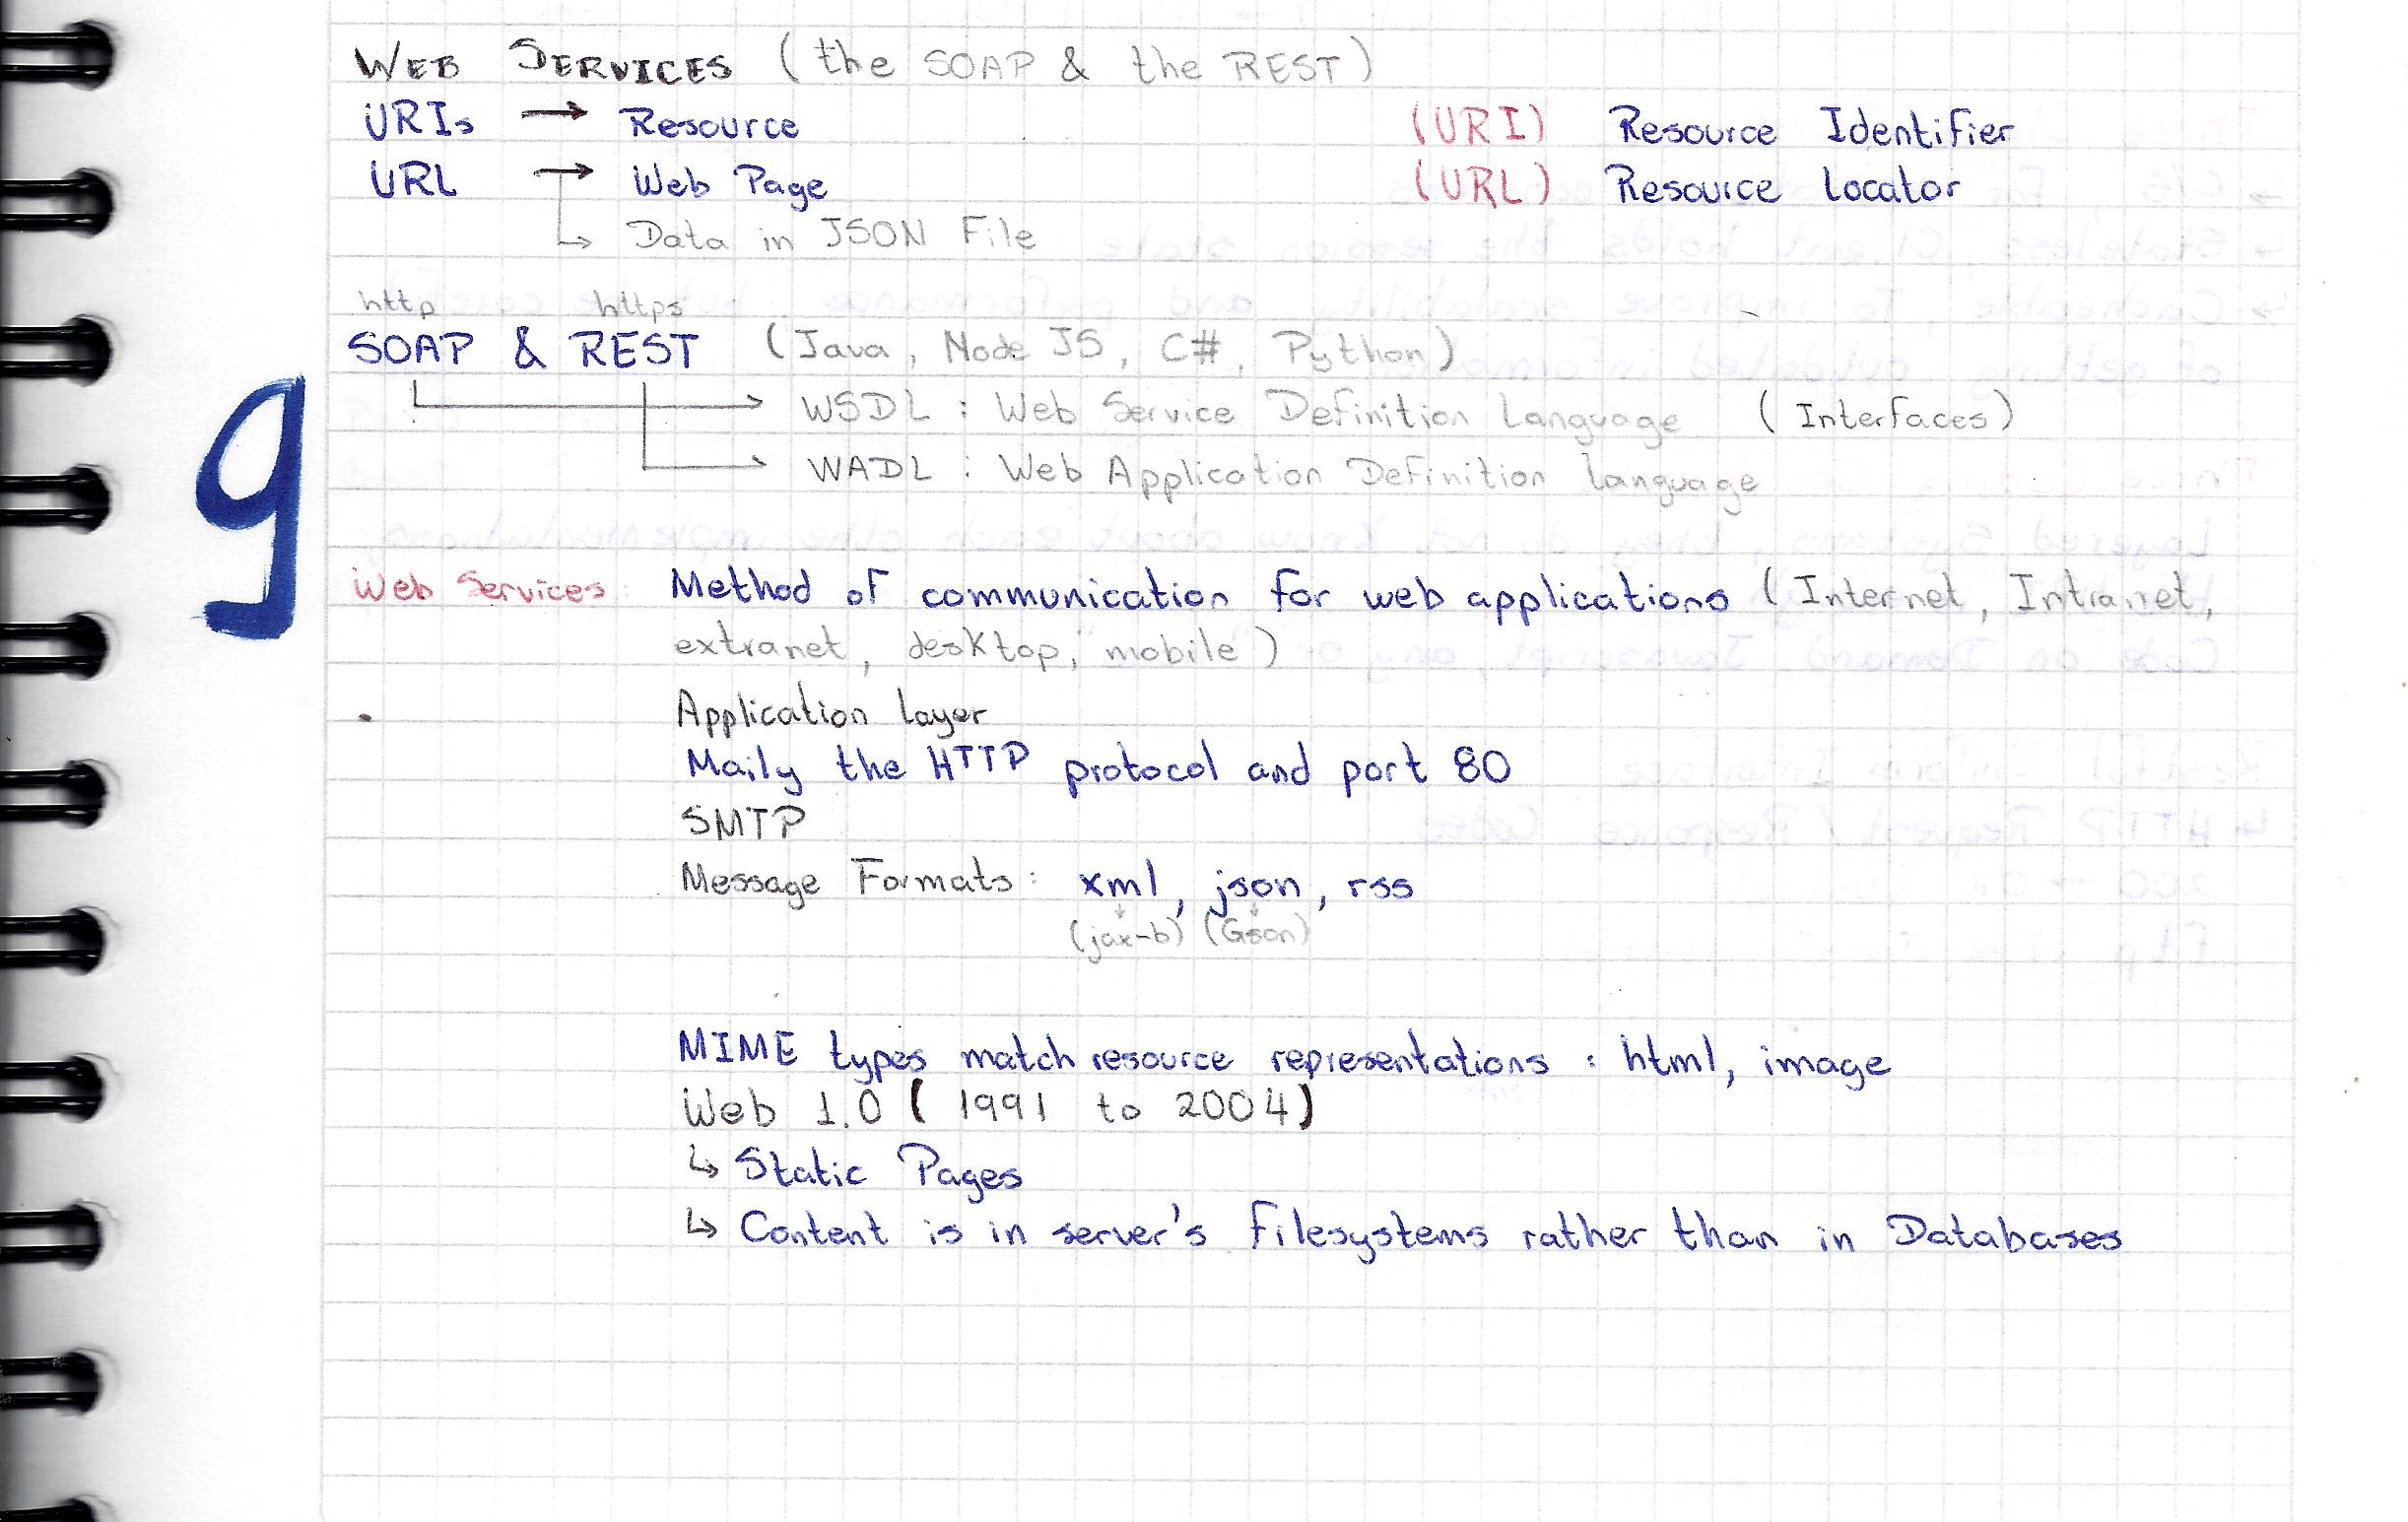 WEB SERVICES (the SOAP & the REST)
URIs → Resource (URI) Resource Identifier
URL → Web Page (URL) Resource Locator
↳ Data in JSON File
http https
SOAP & REST (Java, Node JS, C#, Python)
→ WSDL : Web Service Definition Language (Interfaces)
→ WADL : Web Application Definition Language
9
Web Services: Method of communication for web applications (Internet, Intranet,
extranet, desktop, mobile)
Application Layer
Maily the HTTP protocol and port 80
SMTP
Message Formats: xml, json, rss
(jax-b) (Gson)
MIME types match resource representations : html, image
Web 1.0 (1991 to 2004)
↳ Static Pages
↳ Content is in server's filesystems rather than in Databases